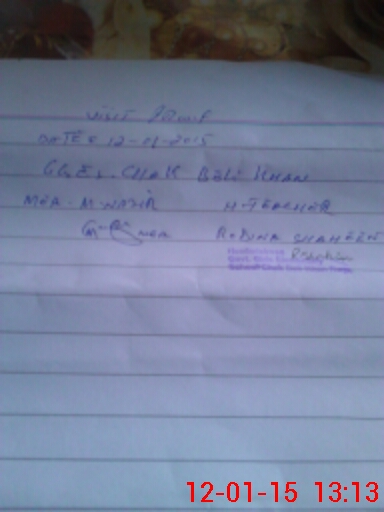 VISIT Proof
DATE: 12-01-2015
GGES. CHAK Beli KHAN
MEA. M. NAZIR H-TEACHER
MEA RUBINA SHAHEEN
12-01-15 13:13